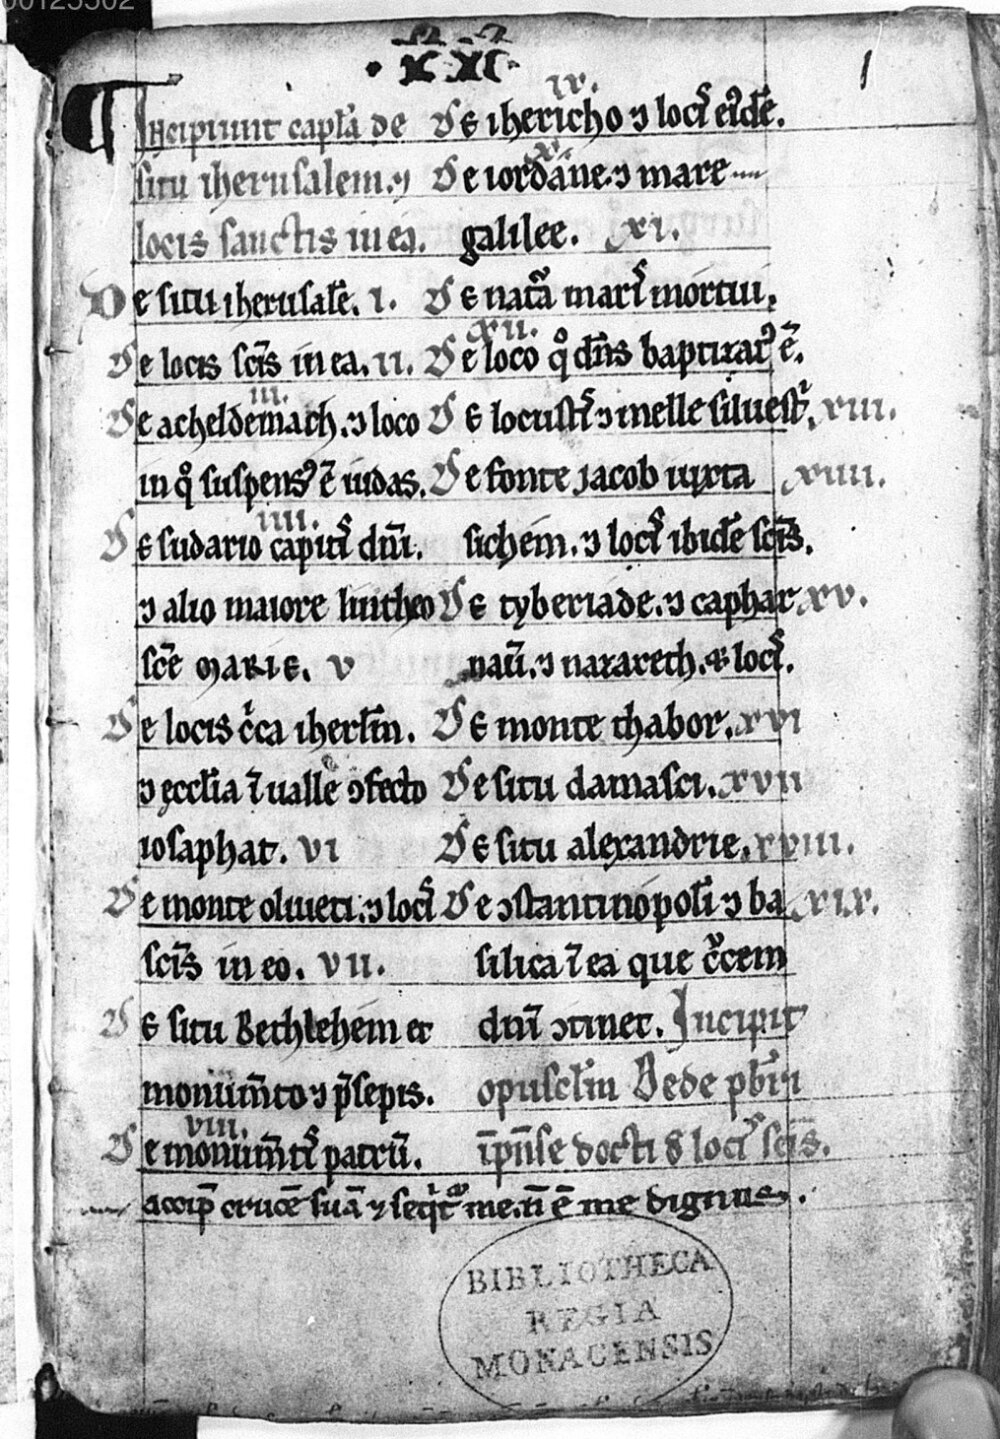 00125502
1
Incipiunt capl̄a de
situ iherusalem. ⁊
locis sanctis in ea.
De situ iherusalē. I.
De locis scīs in ea. II.
III.
De acheldemach. ⁊ loco
in qͦ suspens᷒ ē iudas.
IIII.
De sudario capitꝭ dnī.
⁊ alio maiore lintheo
scē MARIE. V
De locis cͥca iherlm̄.
⁊ ęccl̄ia ī ualle ꝯfecto
iosaphat. VI
De monte oliueti. ⁊ locꝭ
scīs in eo. VII.
De situ Bethlehem et
monum̄to ⁊ p̄sepis.
VIII.
De monum̄tꝭ patrū.
IX.
De ihericho ⁊ locꝭ eiꝰdē.
X.
De iordane. ⁊ mare
galilee. XI.
De natᷓa marꝭ mortui.
XII.
De loco qͦ dn̄s baptizatꝰ ē.
De locustꝭ ⁊ melle siluestͥ. XIII.
De fonte jacob iuxta XIIII.
sichem. ⁊ locꝭ ibidē scīs.
De tyberiade. ⁊ caphar XV.
naū. ⁊ nazareth. & locꝭ.
De monte thabor. XVI
De situ damasci. XVII
De situ alexandrie. XVIII.
De ꝯstantinopolī ⁊ ba XIX.
silica ī ea que cͬcem
dnī ꝯtinet. Incipit
opuscl̄m Bede pbr̄i
īpn̄se docti đ locꝭ scīs.
accip̄ crucē suā ⁊ seqͥtᷣ me. n̄ ē me dignus.
BIBLIOTHECA
REGIA
MONACENSIS